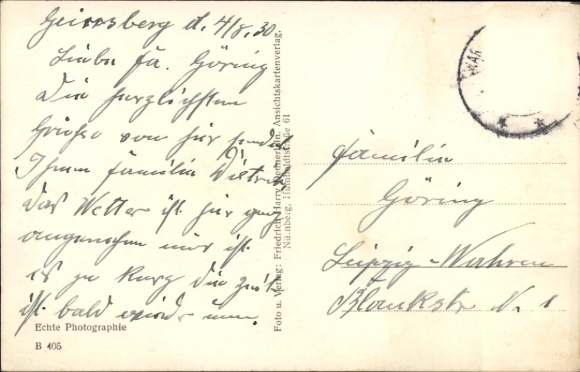 Geiersberg d. 4/8. 30
Liebe Fa. Göring
Die herzlichsten
Grüße von hir sendet
Ihnen Familie Dietrich
das Wetter ist hir ganz
angenehm nur ist
es zu kurz die Zeit
ist bald wieder um.
Echte Photographie
B 405
Foto u. Verlag: Friedrich Harry Dennerlein, Ansichtskartenverlag,
Nürnberg, Humboldtstraße 61
Familie
Göring
Leipzig-Wahren
Blankstr N. 1